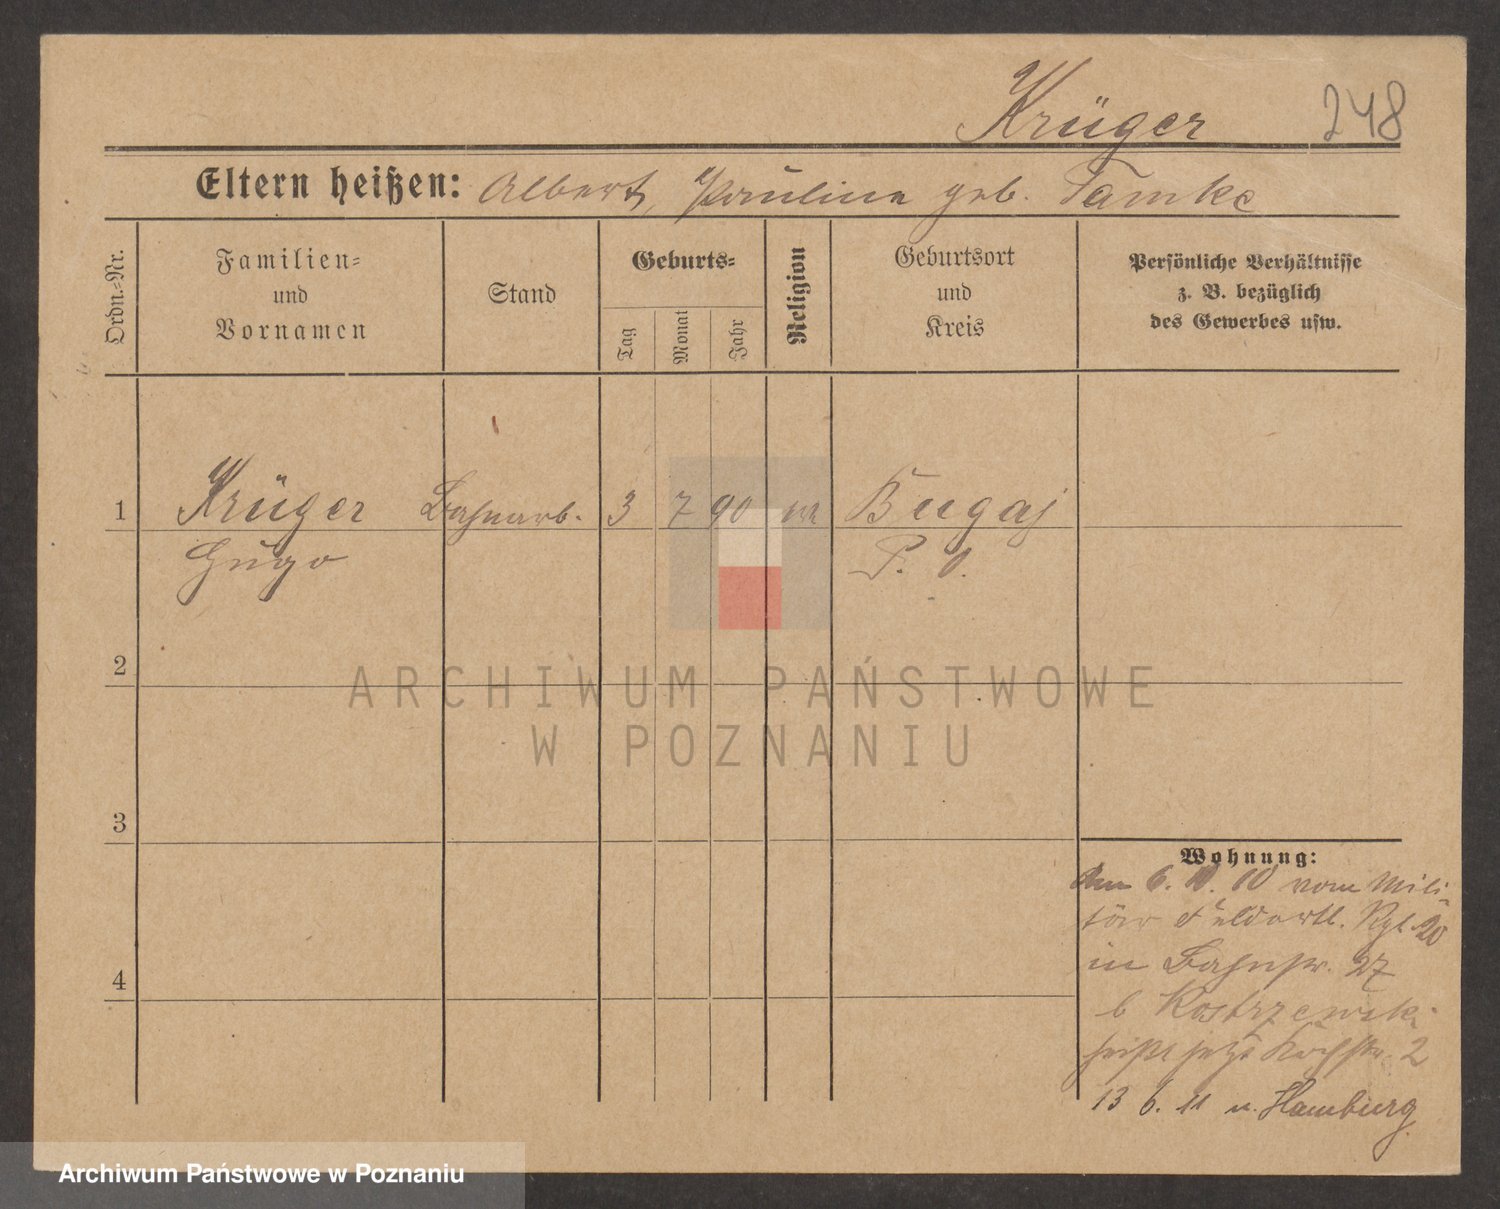 Krüger 248
Eltern heißen: Albert, Pauline geb. Tamke
Ordn.-Nr.
Familien-
und
Vornamen
Stand
Geburts-
Tag
Monat
Jahr
Religion
Geburtsort
und
Kreis
Persönliche Verhältnisse
z. B. bezüglich
des Gewerbes usw.
1 Krüger Bahnarb. 3 7 90 Bugaj
Hugo P. O.
2
3
4
Wohnung:
Am 6. 10. 10 vom Mili
tär Feldartl. Rgt 20
in Bahnstr. 27
b Kostrzewski
heißt jetzt 2
13 6. 11 n. Hamburg
ARCHIWUM PAŃSTWOWE
W POZNANIU
Archiwum Państwowe w Poznaniu